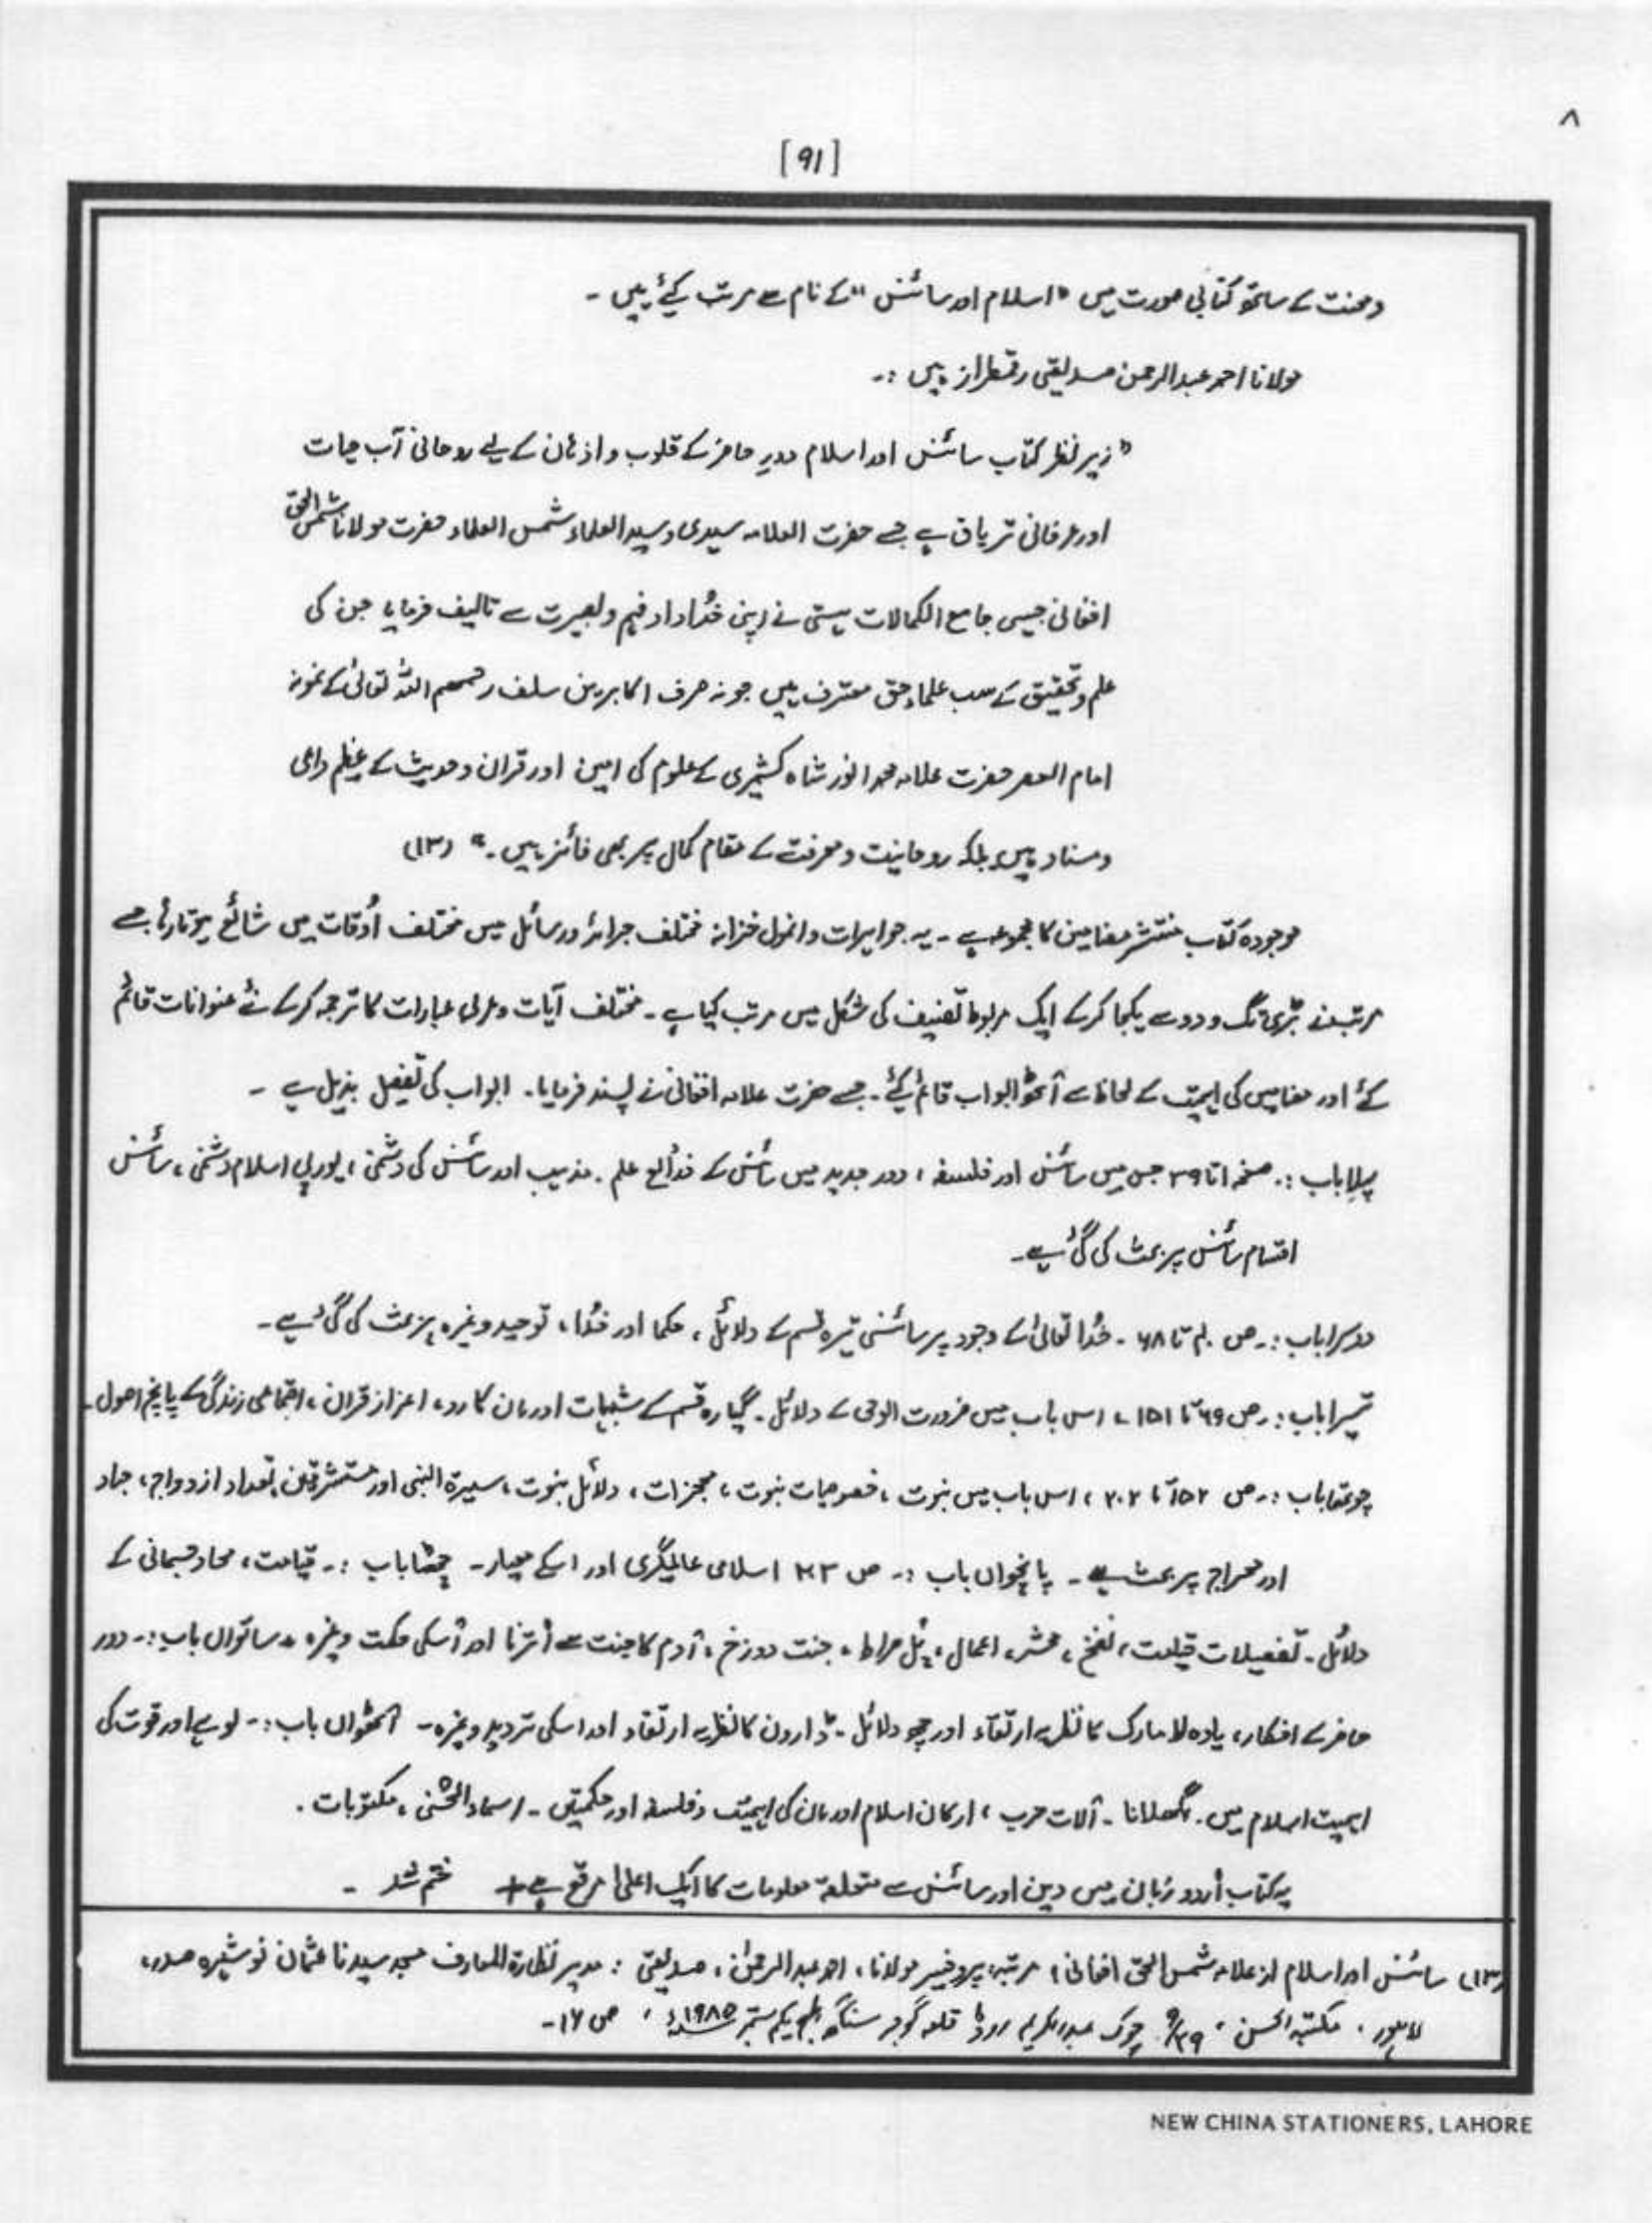 ۸
[91]
ومحنت کے ساتھ کتابی صورت میں "اسلام اور سائنس" کے نام سے مرتب کیئے ہیں ۔
مولانا احمد عبدالرحمن صدیقی رقمطراز ہیں :۔
"زیر نظر کتاب سائنس اور اسلام دورِ حاضر کے قلوب و اذہان کے لیے روحانی آب حیات
اور عرفانی تریاق ہے جسے حضرت العلامہ سیدی و سید العلماء شمس العلماء حضرت مولانا شمس الحق
افغانی جیسی جامع الکمالات ہستی نے اپنی خُداداد فہم و بصیرت سے تالیف فرمایا جن کی
علم و تحقیق کے سب علماءِ حق معترف ہیں جو نہ صرف اکابرین سلف رحمھم اللہ تعالیٰ کے نمونہ
امام العصر حضرت علامہ محمد انور شاہ کشمیری کے علوم کی امین اور قران و حدیث کے عظیم داعی
ومناد ہیں بلکہ روحانیت و معرفت کے مقام کمال پر بھی فائز ہیں ۔" (۱۳)
موجودہ کتاب منتشر مضامین کا مجموعہ ہے ۔ یہ جواہرات و انمول خزانہ مختلف جرائد و رسائل میں مختلف اُوقات میں شائع ہوتا رہا جسے
مرتب نے بڑی تگ و دو سے یکجا کر کے ایک مربوط تصنیف کی شکل میں مرتب کیا ہے ۔ مختلف آیات و عربی عبارات کا ترجمہ کر کے نئے عنوانات قائم
کئے اور مضامیں کی اہمیت کے لحاظ سے آٹھ ابواب قائم کیئے ۔ جسے حضرت علامہ افغانی نے پسند فرمایا ۔ ابواب کی تفصیل بذیل ہے ۔
پہلا باب :۔ صفحہ ۱ تا ۳۹ جس میں سائنس اور فلسفہ ، دور جدید میں سائنس کے ذرائع علم ۔ مذہب اور سائنس کی دشمنی ، یورپی اسلام دشمنی ، سائنس
اقسام سائنس پر بحث کی گئی ہے ۔
دوسرا باب :۔ ص ۴۰ تا ۶۸ ۔ خُدا تعالیٰ کے وجود پر سائنسی تیرہ قسم کے دلائل ، حکما اور خُدا ، توحید وغیرہ پر بحث کی گئی ہے ۔
تیسرا باب :۔ ص ۶۹ تا ۱۵۱ ، اس باب میں ضرورت الوحی کے دلائل ۔ گیارہ قسم کے شبہات اور ان کا رد ، اعزاز قران ، اجتماعی زندگی کے پانچ اصول ۔
چوتھا باب :۔ ص ۱۵۲ تا ۲۰۲ ، اس باب میں نبوت ، خصوصیات نبوت ، معجزات ، دلائل نبوت ، سیرة النبی اور مستشرقین ، تعداد ازدواج ، جہاد
اور معراج پر بحث ہے ۔ پانچواں باب :۔ ص ۲۰۳ اسلامی عالمگیری اور اسکے معیار ۔ چھٹا باب :۔ قیامت ، معاد جسمانی کے
دلائل ۔ تفصیلات قیامت ، نفخ ، حشر ، اعمال ، پُل صراط ، جنت دوزخ ، آدم کا جنت سے اُترنا اور اُسکی حکمت وغیرہ ۔ ساتواں باب :۔ دور
حاضر کے افکار ، لا مارک کا نظریہ ارتقاء اور چھ دلائل ۔ ڈارون کا نظریہ ارتقاء اور اسکی تردید وغیرہ ۔ آٹھواں باب :۔ لوہے اور قوت کی
اہمیت اسلام میں ۔ پگھلانا ۔ آلات حرب ، ارکان اسلام اور ان کی اہمیت و فلسفہ اور حکمتیں ۔ اسماء الحُسنیٰ ، مکتوبات ۔
یہ کتاب اُردو زبان میں دین اور سائنس سے متعلقہ معلومات کا ایک اعلیٰ مرقع ہے + ختم شد ۔
(۱۳) سائنس اور اسلام از علامہ شمس الحق افغانی ؛ مرتبہ پروفیسر مولانا ، احمد عبدالرحمٰن ، صدیقی : مدیر نظارة المعارف مسجد سیدنا عثمان نوشہرہ صدر ،
لاہور ، مکتبہ الحسن ، ۹/۳۹ چوک عبدالکریم روڈ قلعہ گوجر سنگھ طبع یکم ستمبر ۱۹۸۵ء ، ص ۱۶ ۔
NEW CHINA STATIONERS, LAHORE